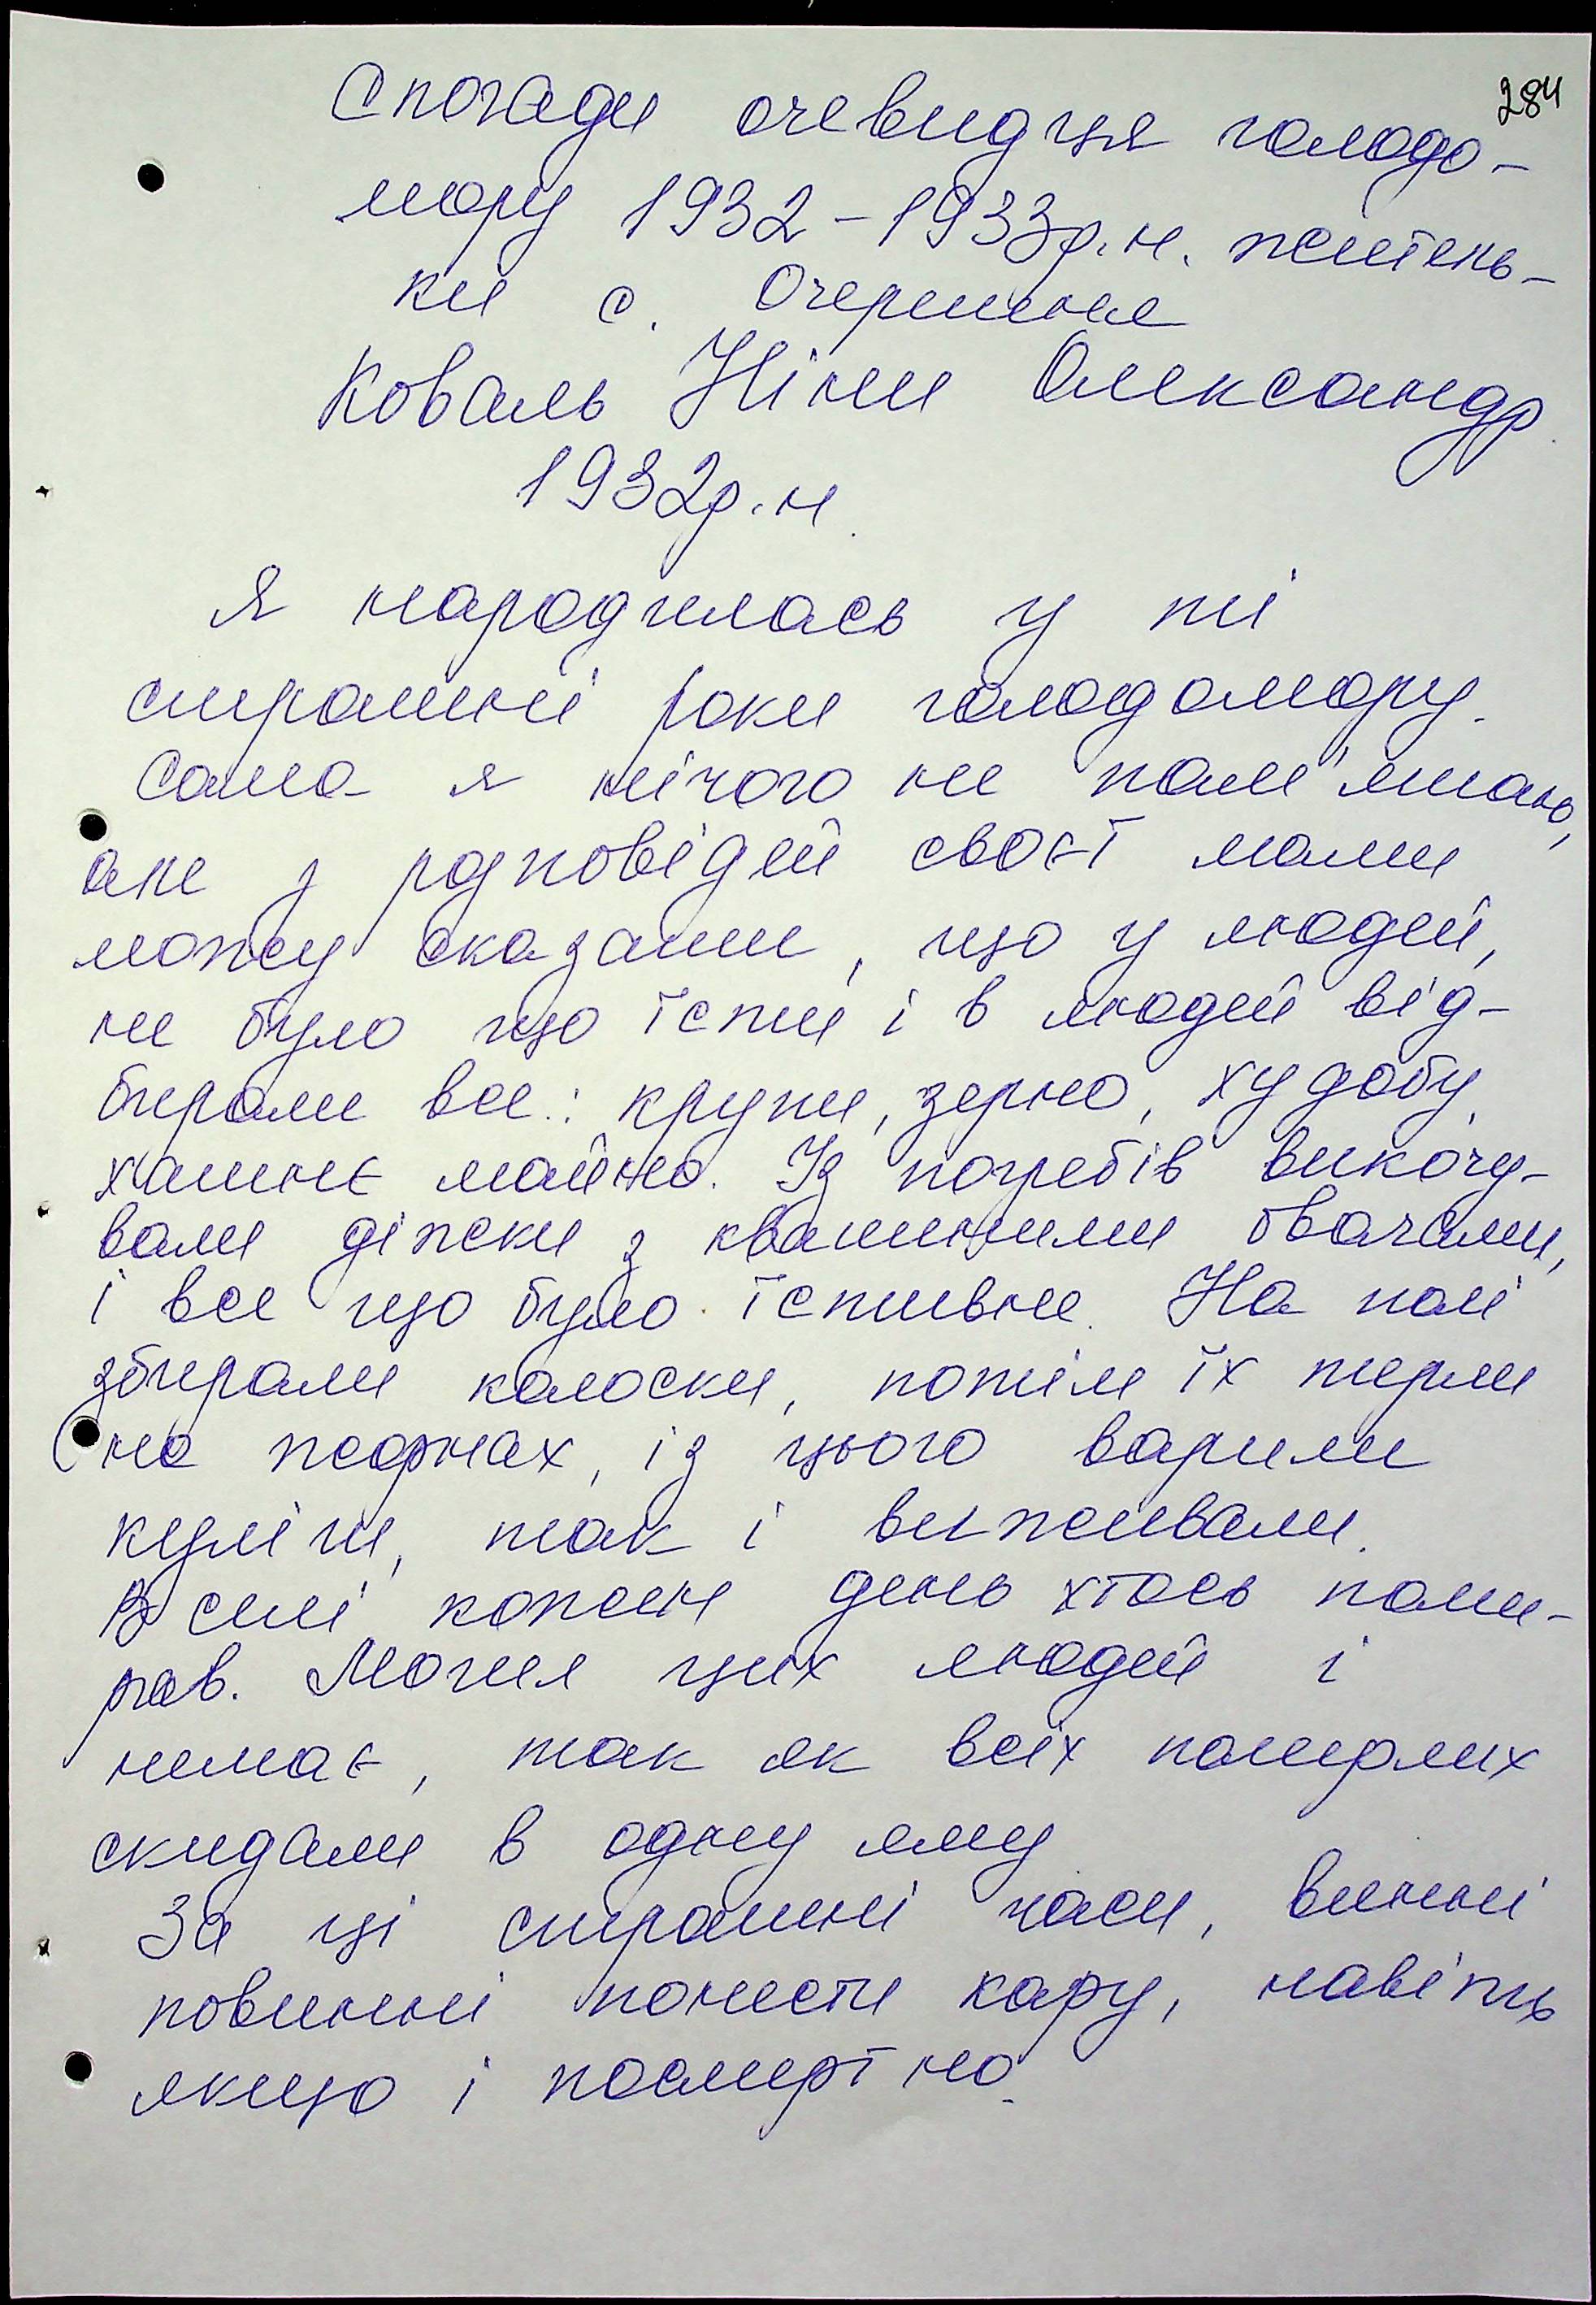 284
Спогади очевидця голодо-
мору 1932-1933р.н. житель-
ки с. Очеретня
Коваль Ніни Олександр.
1932р.н.
Я народилась у ті
страшні роки голодомору.
Сама я нічого не пам'ятаю,
але з розповідей своєї мами
можу сказати, що у людей,
не було що їсти і в людей від-
бирали все: крупи, зерно, худобу,
хатнє майно. Із погребів викочу-
вали діжки з квашеними овочами,
і все що було їстивне. На полі
збирали колоски, потім їх терли
на жорнах, із цього варили
куліш, так і виживали.
В селі кожен день хтось поми-
рав. Могил цих людей і
немає, так як всіх померлих
скидали в одну яму
За ці страшні часи, винні
повинні понести кару, навіть
якщо і посмертно.